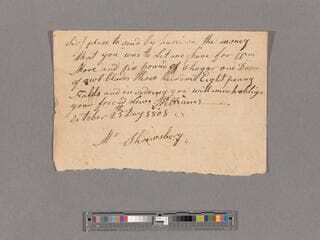 Sir I plese to send by harrison the money
that you was to Let me have for
More and six pound of Shugar one Dozen
of awl Blads three hundred Eight penny
Nails and in so doing you will much oblige
your friend
October 25th Day 1808
Mr Shrewsbery